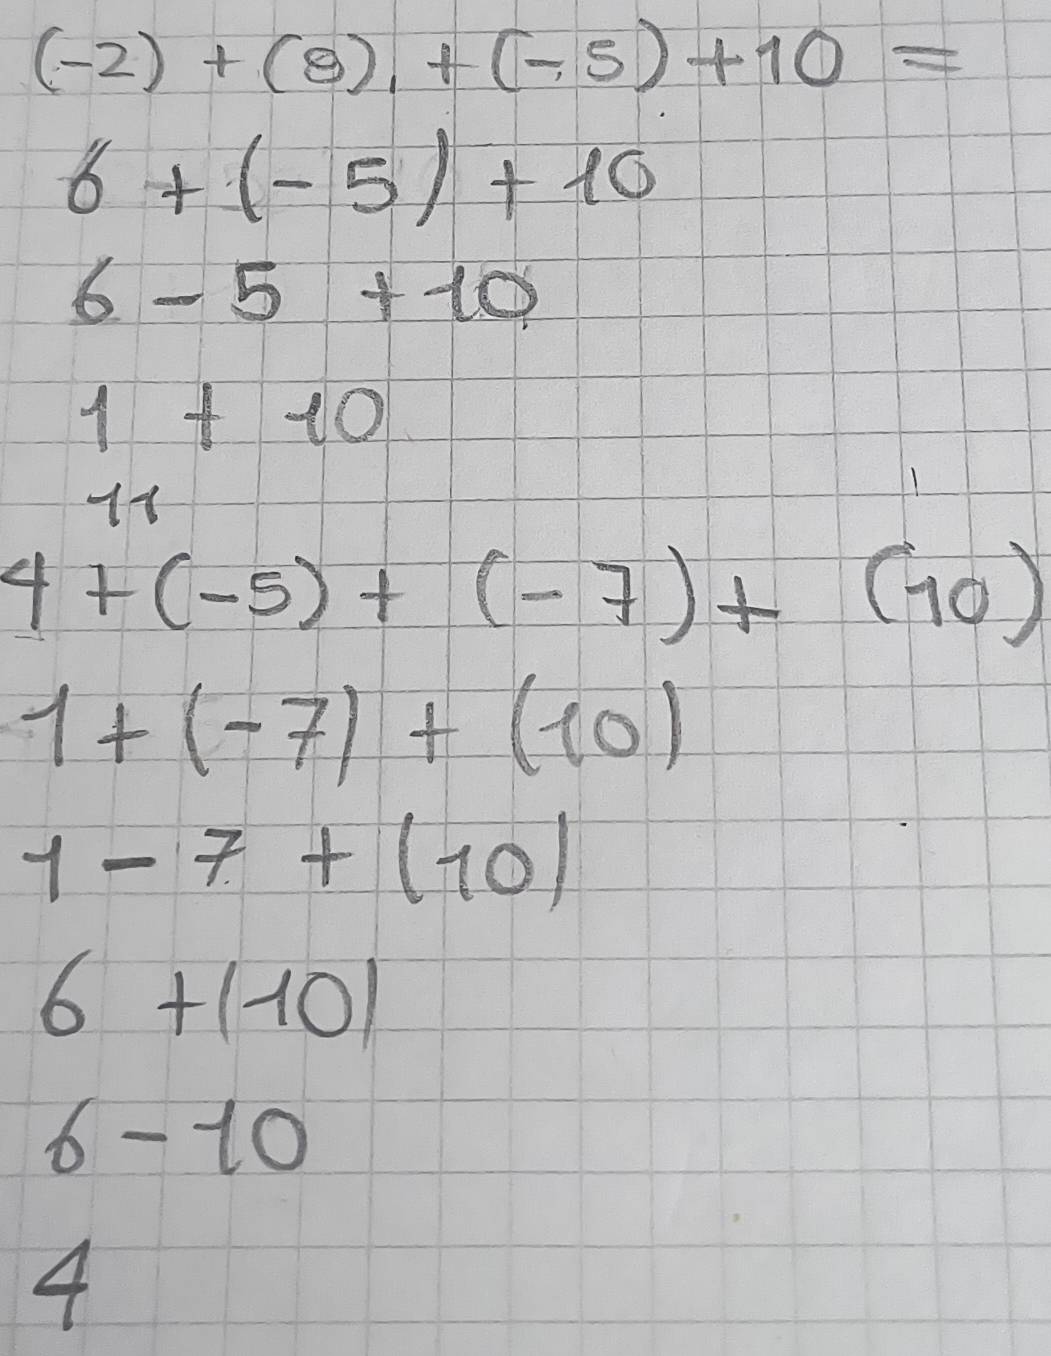 (-2) + (8) + (-5) + 10 =
6 + (-5) + 10
6 - 5 + 10
1 + 10
11
4 + (-5) + (-7) + (10)
1 + (-7) + (10)
1 - 7 + (10)
6 + (10)
6 - 10
4